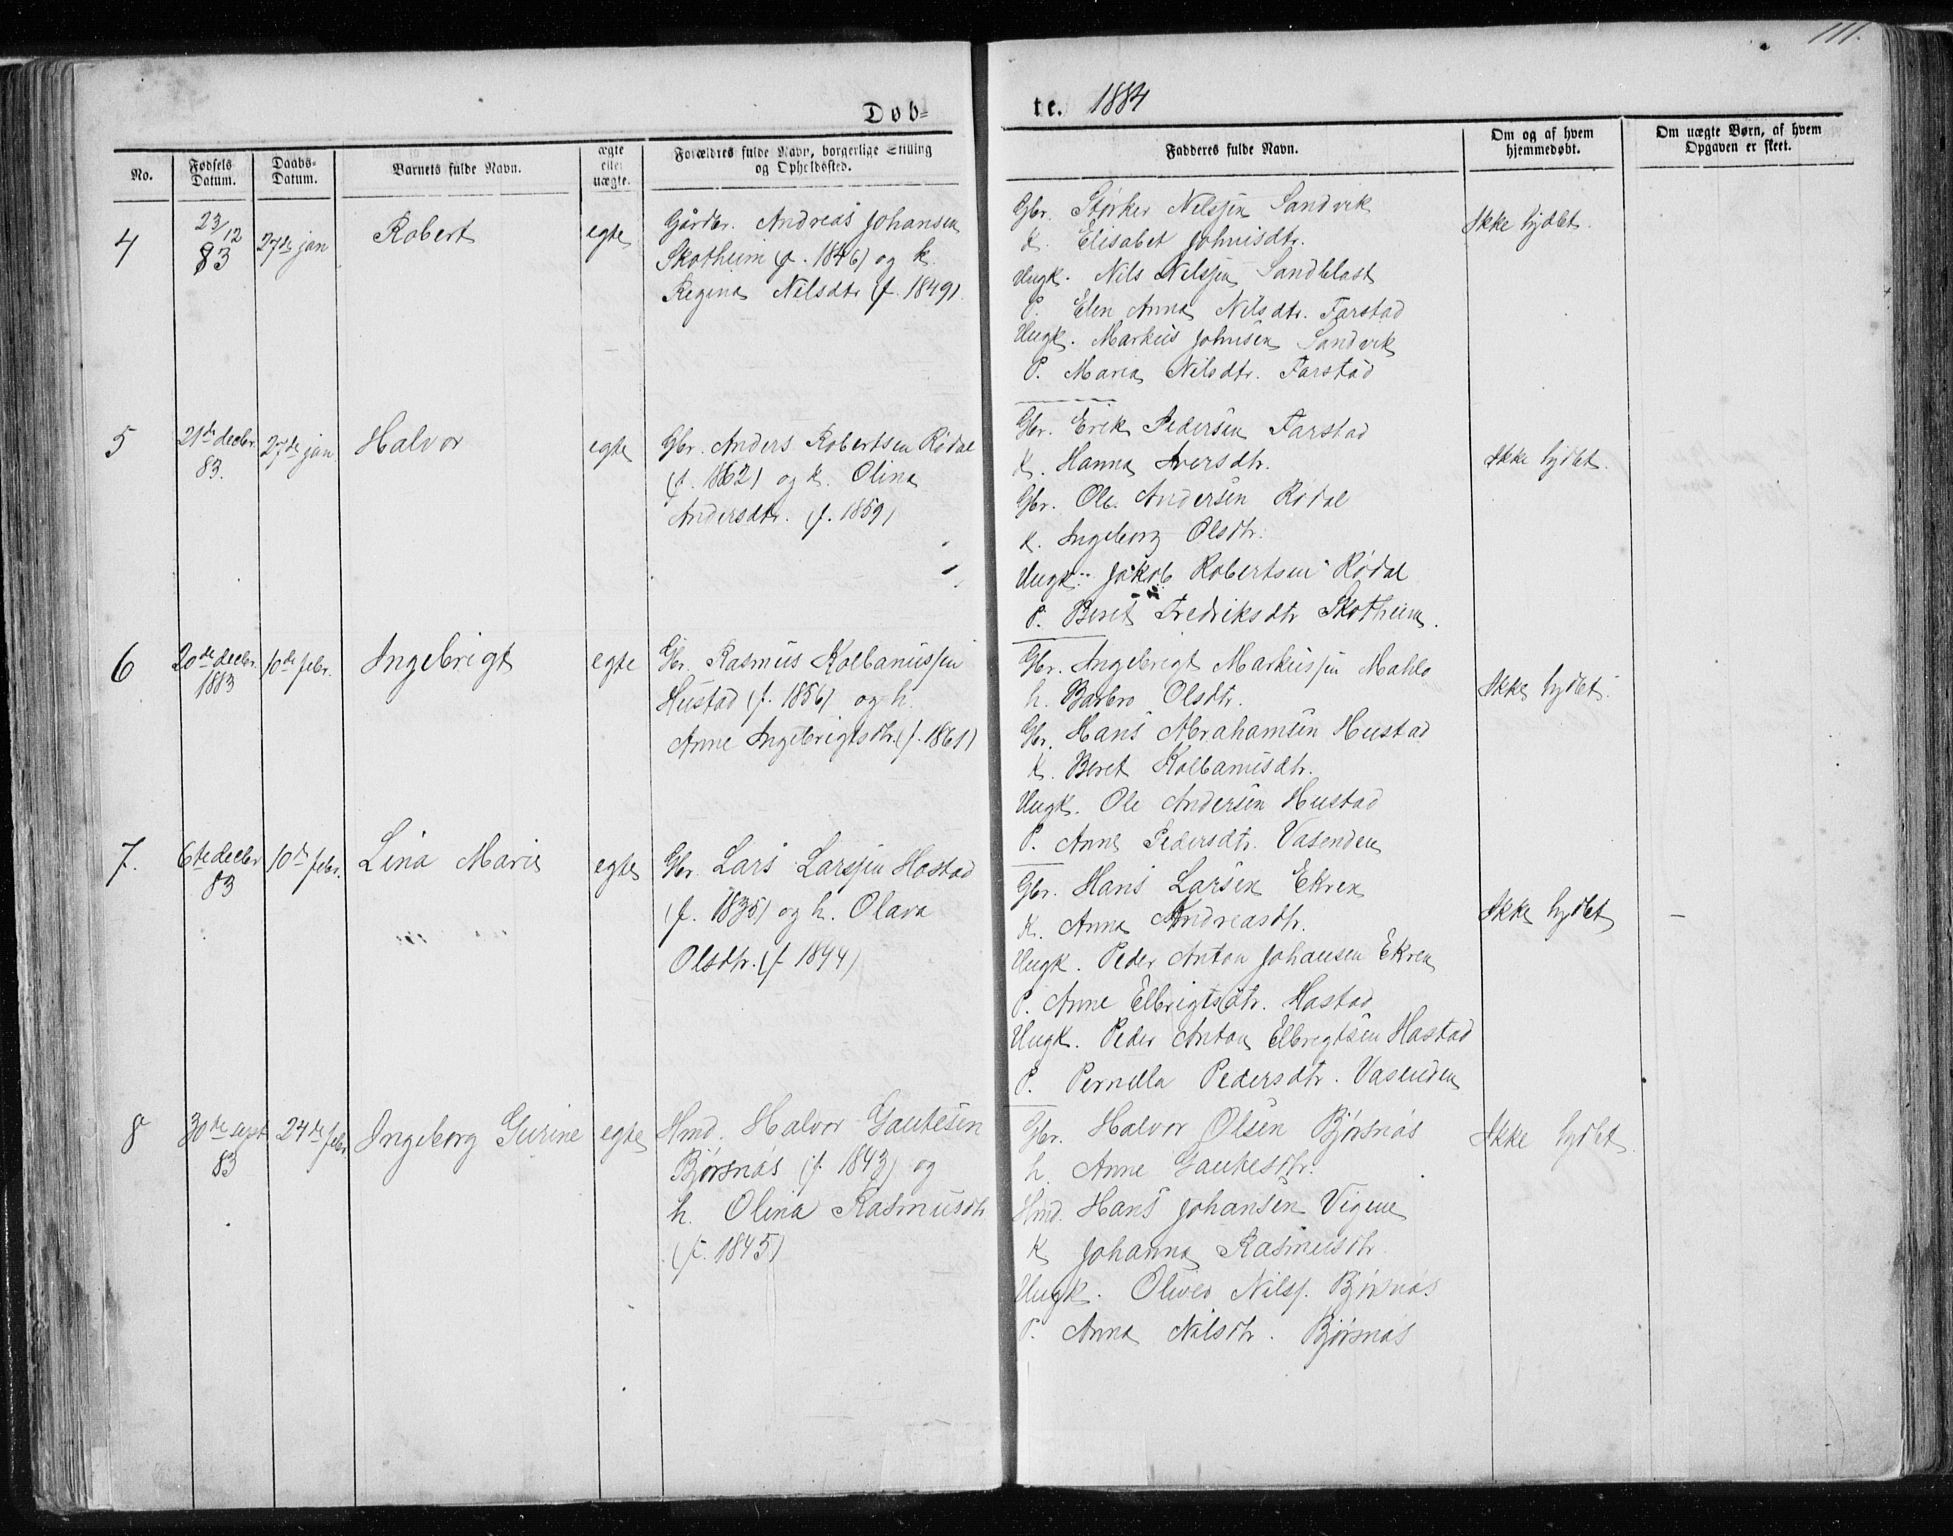 111.
Døb=
te. 1884
No.
Fødsels
Datum.
Daabs-
Datum.
Barnets fulde Navn.
ægte
eller
uægte.
Forældres fulde Navn, borgerlige Stilling
og Opholdssted.
Fadderes fulde Navn.
Om og af hvem
hjemmedøbt.
Om uægte Børn, af hvem
Opgaven er skeet.
4
23/12
83
27de jan
Robert
egte
Gårdbr. Andreas Johansen
Skotheim (f. 1846) og k.
Regina Nilsdtr (f. 1849).
Gbr. Størker Nilssen Sandvik
K. Elisabet Johnisdtr.
Ungk. Nils Nilssen Sandblåst
P. Elen Anna Nilsdtr. Farstad
Ungk. Markus Johnisen Sandvik
P. Maria Nilsdtr. Farstad
Ikke hjdbt.
5
21de decbr.
83.
27de jan
Halvor
egte
Gbr. Anders Robertsen Rødal
(f. 1862) og k. Olina
Andersdtr. (f. 1859)
Gbr. Erik Pedersen Farstad
K. Hanna Iversdtr.
Gbr. Ole Andersen Rødal
K. Ingeborg Olsdtr.
Ungk. Jakob Robertsen Rødal
P. Beret Fredriksdtr Skotheim.
Ikke hjdbt.
6
20de decbr.
1883
10de febr.
Ingebrigt
egte
Gbr. Rasmus Kolbanussen
Hustad (f. 1856) og h.
Anne Ingebrigtsdtr. (f. 1861)
Gbr. Ingebrigt Markussen Mahlo
h. Barbro Olsdtr.
Gbr. Hans Abrahamsen Hustad
K. Beret Kolbanusdtr.
Ungk. Ole Andersen Hustad
P. Anne Pedersdtr. Vasenden
Ikke hjdbt.
7.
6te decbr
83
10de febr.
Lina Marie
egte
Gbr. Lars Larssen Hostad
(f. 1835) og h. Olava
Olsdtr. (f. 1844)
Gbr. Hans Larsen Ekren
K. Anna Andreasdtr.
Ungk. Peder Anton Johansen Ekren
P. Anne Elbrigtsdtr. Hostad
Ungk. Peder Anton Elbrigtsen Hostad
P. Pernella Pedersdtr. Vasenden
Ikke hjdbt
8
30de sept
83
24de febr
Ingeborg Gurine
egte
Hmd. Halvor Gautesen
Bjørsnås (f. 1843) og
h. Olina Rasmusdtr
(f. 1845)
Gbr. Halvor Olsen Bjørsnås
h. Anne Gautesdtr.
Hmd. Hans Johansen Vigene
K Johanna Rasmusdtr.
Ungk. Oliver Nilss. Bjørsnås
P. Anna Nilsdtr. Bjørsnås
Ikke hjdbt.